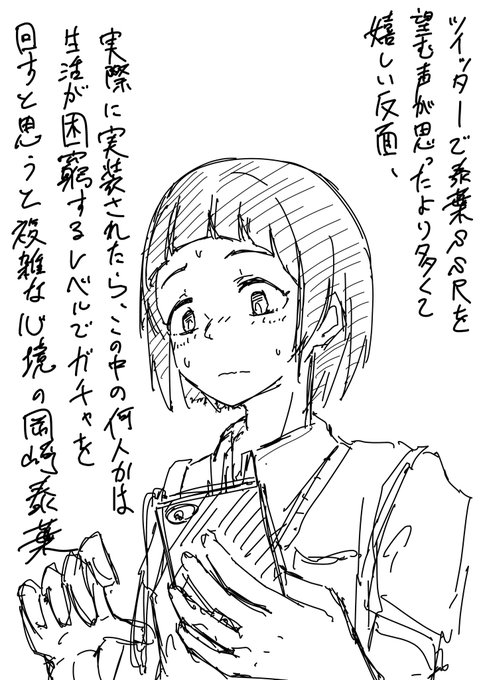 ツイッターで泰葉SSRを
望む声が思ったより多くて
嬉しい反面、
実際に実装されたら、この中の何人かは
生活が困窮するレベルでガチャを
回すと思うと複雑な心境の岡崎泰葉